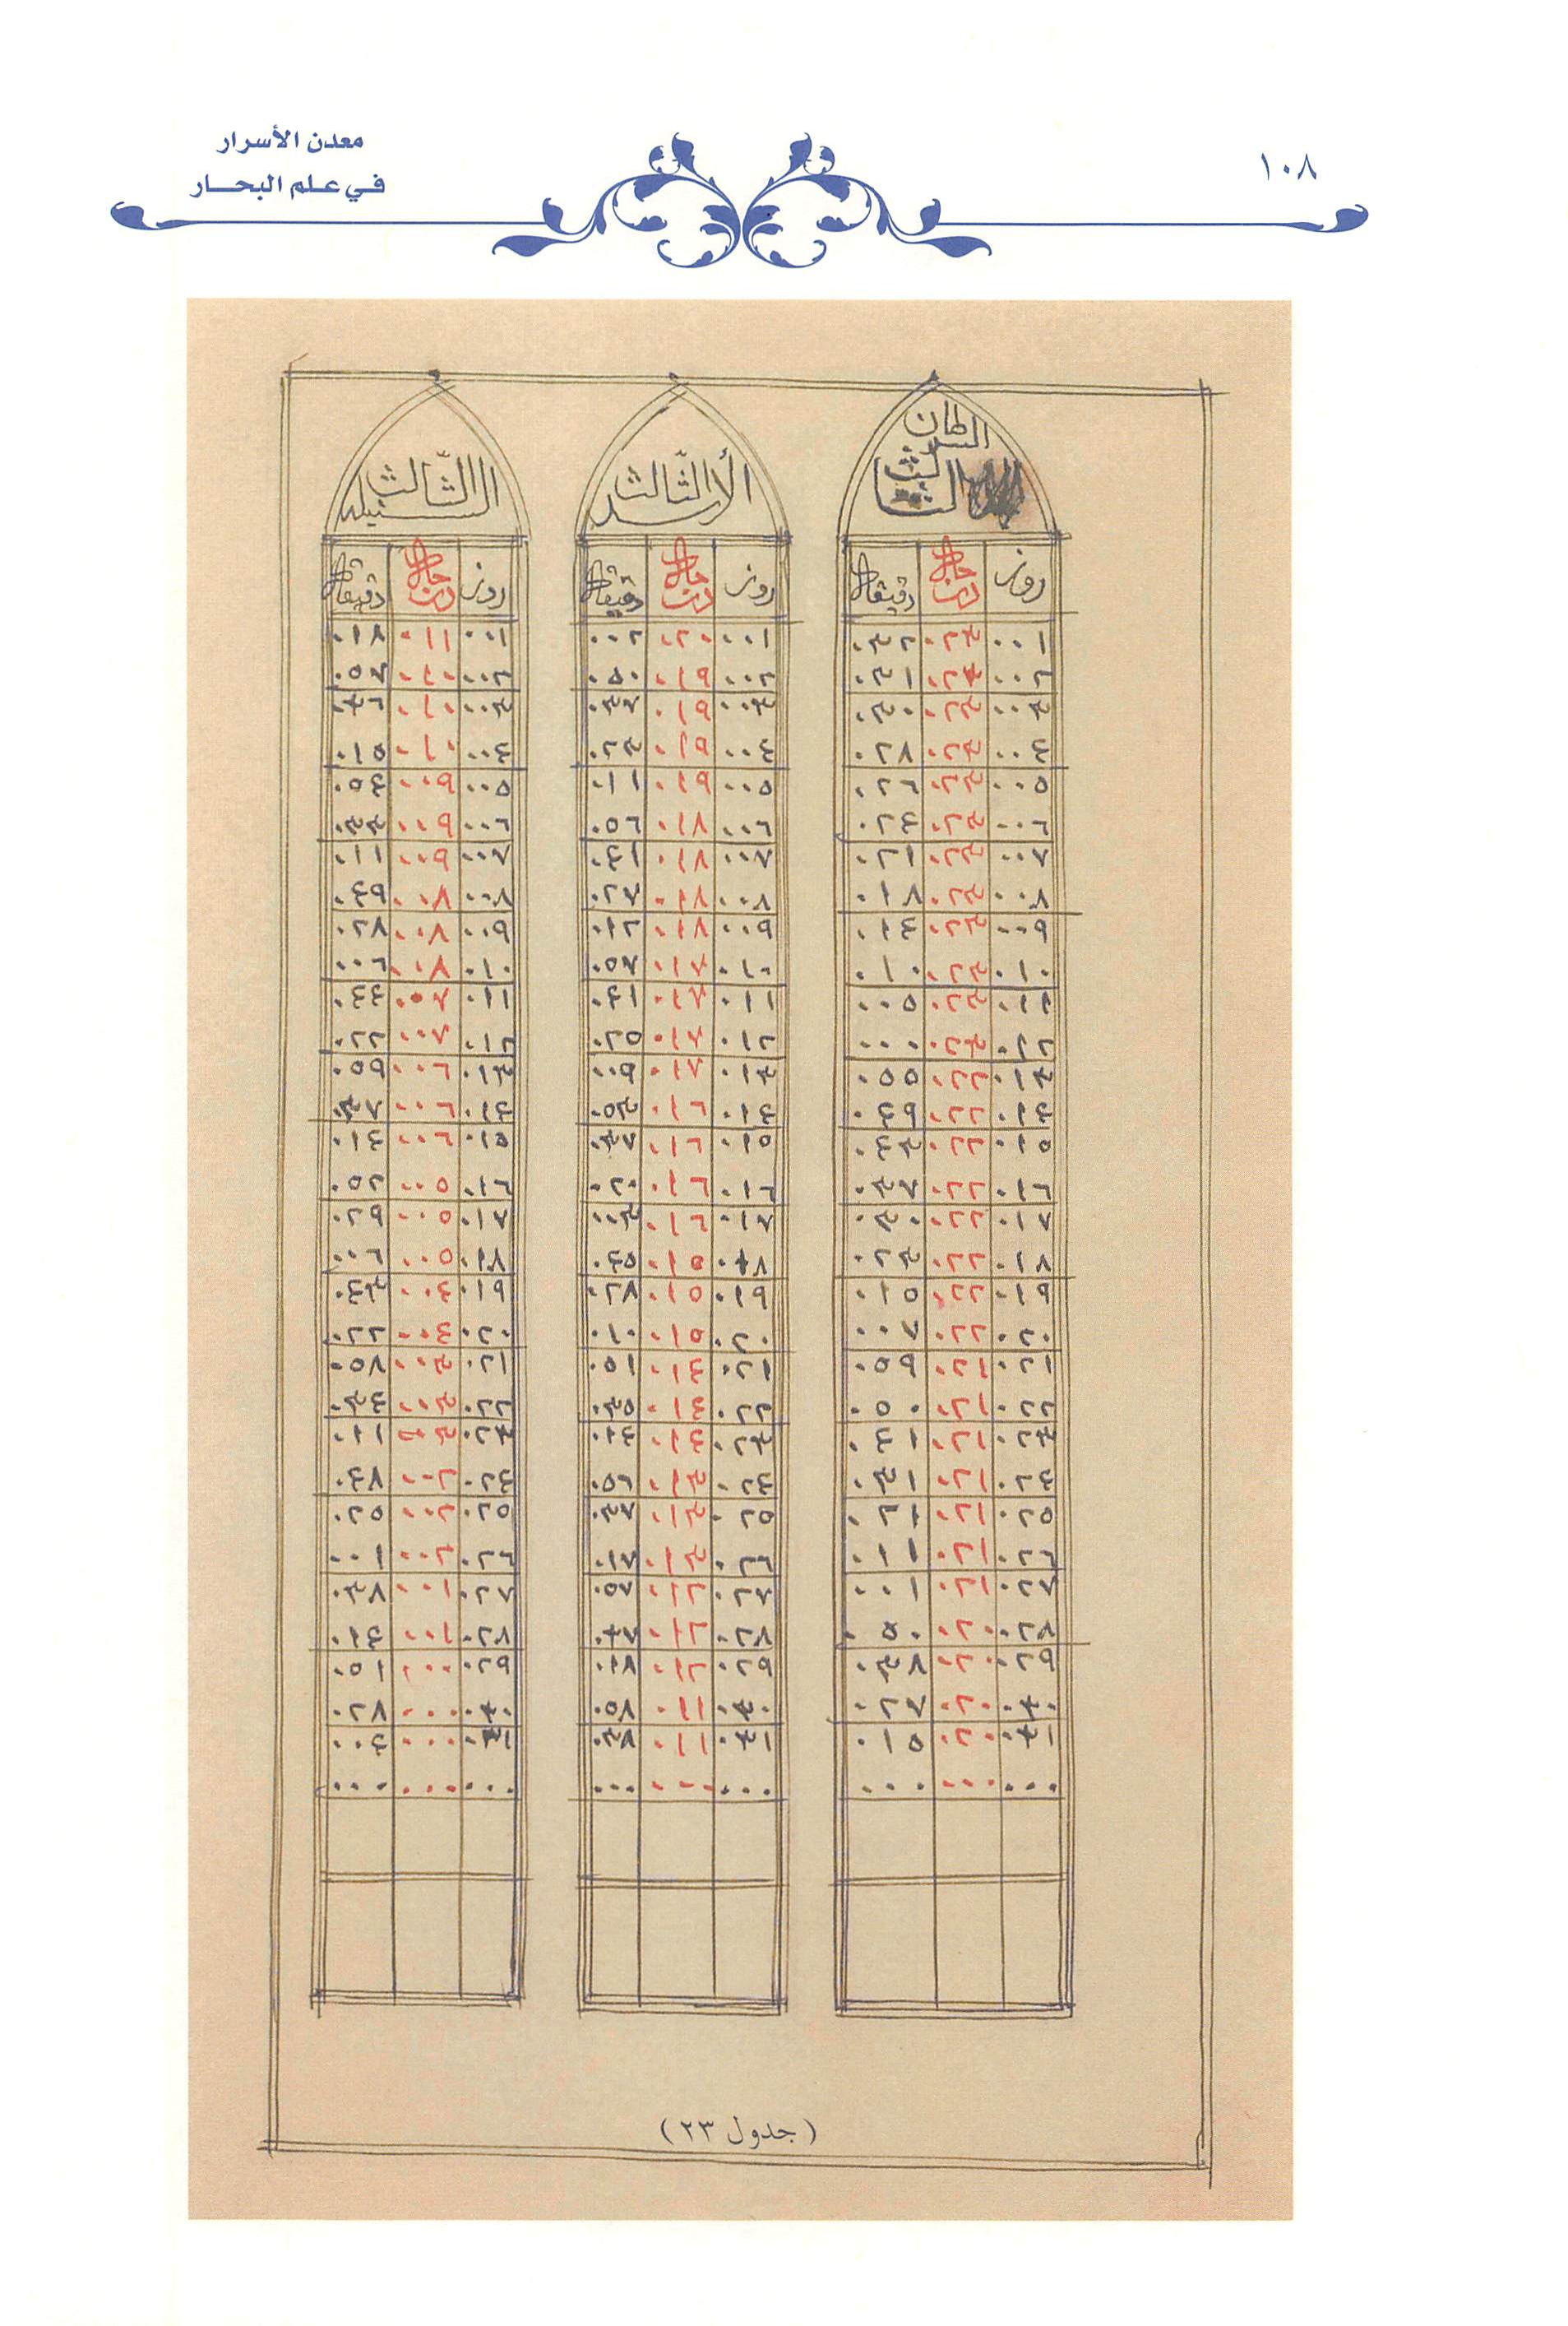 معدن الأسرار
في علم البحار
١٠٨
السرطان
الثالث
روز درجات دقيقة
٠٠١ ٠٢٣ ٠٣٢
٠٠٢ ٠٢٣ ٠٣١
٠٠٣ ٠٢٣ ٠٣٠
٠٠٤ ٠٢٣ ٠٢٨
٠٠٥ ٠٢٣ ٠٢٦
٠٠٦ ٠٢٣ ٠٢٤
٠٠٧ ٠٢٣ ٠٢١
٠٠٨ ٠٢٣ ٠١٨
٠٠٩ ٠٢٣ ٠١٤
٠١٠ ٠٢٣ ٠١٠
٠١١ ٠٢٣ ٠٠٥
٠١٢ ٠٢٣ ٠٠٠
٠١٣ ٠٢٢ ٠٥٥
٠١٤ ٠٢٢ ٠٤٩
٠١٥ ٠٢٢ ٠٤٣
٠١٦ ٠٢٢ ٠٣٧
٠١٧ ٠٢٢ ٠٣٠
٠١٨ ٠٢٢ ٠٢٣
٠١٩ ٠٢٢ ٠١٥
٠٢٠ ٠٢٢ ٠٠٧
٠٢١ ٠٢١ ٠٥٩
٠٢٢ ٠٢١ ٠٥٠
٠٢٣ ٠٢١ ٠٤١
٠٢٤ ٠٢١ ٠٣١
٠٢٥ ٠٢١ ٠٢١
٠٢٦ ٠٢١ ٠١١
٠٢٧ ٠٢١ ٠٠١
٠٢٨ ٠٢٠ ٠٥٠
٠٢٩ ٠٢٠ ٠٣٨
٠٣٠ ٠٢٠ ٠٢٧
٠٣١ ٠٢٠ ٠١٥
٠٠٠ ٠٠٠ ٠٠٠
الأسد الثّالث
روز درجات دقيقة
٠٠١ ٠٢٠ ٠٠٢
٠٠٢ ٠١٩ ٠٥٠
٠٠٣ ٠١٩ ٠٣٧
٠٠٤ ٠١٩ ٠٢٣
٠٠٥ ٠١٩ ٠١١
٠٠٦ ٠١٨ ٠٥٦
٠٠٧ ٠١٨ ٠٤١
٠٠٨ ٠١٨ ٠٢٧
٠٠٩ ٠١٨ ٠١٢
٠١٠ ٠١٧ ٠٥٧
٠١١ ٠١٧ ٠٤١
٠١٢ ٠١٧ ٠٢٥
٠١٣ ٠١٧ ٠٠٩
٠١٤ ٠١٦ ٠٥٣
٠١٥ ٠١٦ ٠٣٧
٠١٦ ٠١٦ ٠٢٠
٠١٧ ٠١٦ ٠٠٣
٠١٨ ٠١٥ ٠٤٥
٠١٩ ٠١٥ ٠٢٨
٠٢٠ ٠١٥ ٠١٠
٠٢١ ٠١٤ ٠٥١
٠٢٢ ٠١٤ ٠٣٥
٠٢٣ ٠١٤ ٠١٤
٠٢٤ ٠١٣ ٠٥٦
٠٢٥ ٠١٣ ٠٣٧
٠٢٦ ٠١٣ ٠١٧
٠٢٧ ٠١٢ ٠٥٧
٠٢٨ ٠١٢ ٠٣٧
٠٢٩ ٠١٢ ٠١٨
٠٣٠ ٠١١ ٠٥٨
٠٣١ ٠١١ ٠٣٨
٠٠٠ ٠٠٠ ٠٠٠
السنبله الثّالث
روز درجات دقيقة
٠٠١ ٠١١ ٠١٨
٠٠٢ ٠١٠ ٠٥٧
٠٠٣ ٠١٠ ٠٣٦
٠٠٤ ٠١٠ ٠١٥
٠٠٥ ٠٠٩ ٠٥٤
٠٠٦ ٠٠٩ ٠٣٣
٠٠٧ ٠٠٩ ٠١١
٠٠٨ ٠٠٨ ٠٤٩
٠٠٩ ٠٠٨ ٠٢٨
٠١٠ ٠٠٨ ٠٠٦
٠١١ ٠٠٧ ٠٤٤
٠١٢ ٠٠٧ ٠٢٢
٠١٣ ٠٠٦ ٠٥٩
٠١٤ ٠٠٦ ٠٣٧
٠١٥ ٠٠٦ ٠١٤
٠١٦ ٠٠٥ ٠٥٢
٠١٧ ٠٠٥ ٠٢٩
٠١٨ ٠٠٥ ٠٠٦
٠١٩ ٠٠٤ ٠٤٣
٠٢٠ ٠٠٤ ٠٢٢
٠٢١ ٠٠٣ ٠٥٨
٠٢٢ ٠٠٣ ٠٣٤
٠٢٣ ٠٠٣ ٠١١
٠٢٤ ٠٠٢ ٠٤٨
٠٢٥ ٠٠٢ ٠٢٥
٠٢٦ ٠٠٢ ٠٠١
٠٢٧ ٠٠١ ٠٣٨
٠٢٨ ٠٠١ ٠١٤
٠٢٩ ٠٠٠ ٠٥١
٠٣٠ ٠٠٠ ٠٢٨
٠٣١ ٠٠٠ ٠٠٤
٠٠٠ ٠٠٠ ٠٠٠
(جدول ٢٣)